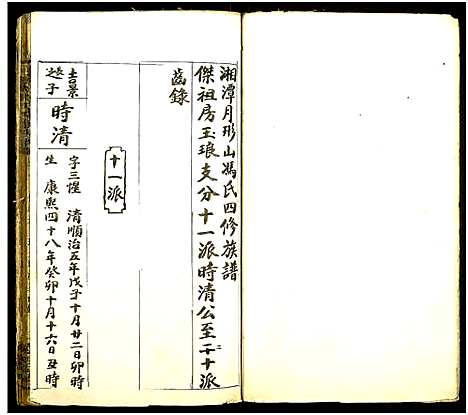 湘潭月形山馮氏四修族譜
傑祖房玉琅支分十一派時清公至二十派
齒錄
十一派
時清
字三惺 清順治五年戊子十月廿二日卯時
生 康熙四十八年癸卯十月十六日丑時